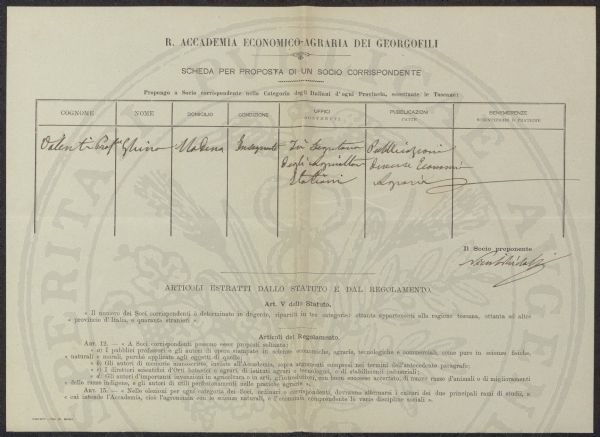 R. ACCADEMIA ECONOMICO-AGRARIA DEI GEORGOFILI
SCHEDA PER PROPOSTA DI UN SOCIO CORRISPONDENTE
Propongo a Socio corrispondente nella Categoria degli Italiani d'ogni Provincia, eccettuate le Toscane:
COGNOME NOME DOMICILIO CONDIZIONE UFFICI SOSTENUTI PUBBLICAZIONI FATTE BENEMERENZE SCIENTIFICHE O PRATICHE
Valenti Prof. Ghino Modena Insegnante Segretario Pubblicazioni
degli Agricoltori diverse Economia
Italiani Agraria
Il Socio proponente
ARTICOLI ESTRATTI DALLO STATUTO E DAL REGOLAMENTO.
Art. V dello Statuto.
« Il numero dei Soci corrispondenti è determinato in dugento, ripartiti in tre categorie: ottanta appartenenti alla regione toscana, ottanta ad altre
« provincie d'Italia, e quaranta stranieri »
Articoli del Regolamento.
ART. 12. — « A Soci corrispondenti possono esser proposti soltanto:
« a) i pubblici professori e gli autori di opere stampate in scienze economiche, agraria, tecnologiche e commerciali, come pure in scienze fisiche,
« naturali e morali, purché applicate agli oggetti di quelle;
« b) Gli autori di memorie manoscritte, inviate all'Accademia, sopra argomenti compresi nei termini dell'antecedente paragrafo;
« c) i direttori scientifici d'Orti botanici o agrari, di istituti agrari e tecnologici, o di stabilimenti industriali;
« d) Gli autori d'importanti invenzioni in agricoltura o in arti, gl'introduttori, con buon successo accertato, di nuove razze d'animali o di miglioramenti
« delle razze indigene, e gli autori di utili perfezionamenti nelle pratiche agrarie ».
ART. 15. — « Nelle elezioni per ogni categoria dei Soci, ordinari e corrispondenti, dovranno alternarsi i cultori dei due principali rami di studio, a
« cui intende l'Accademia, cioè l'agronomia con le scienze naturali, e l'economia comprendente le varie discipline sociali ».